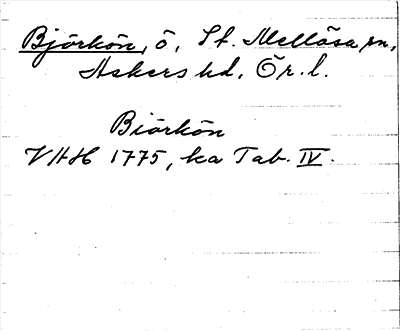 Björkön, ö, St. Mellösa sn,
Askers hd, Ör. l.
Biörkön
VHH 1775, ka Tab. IV.